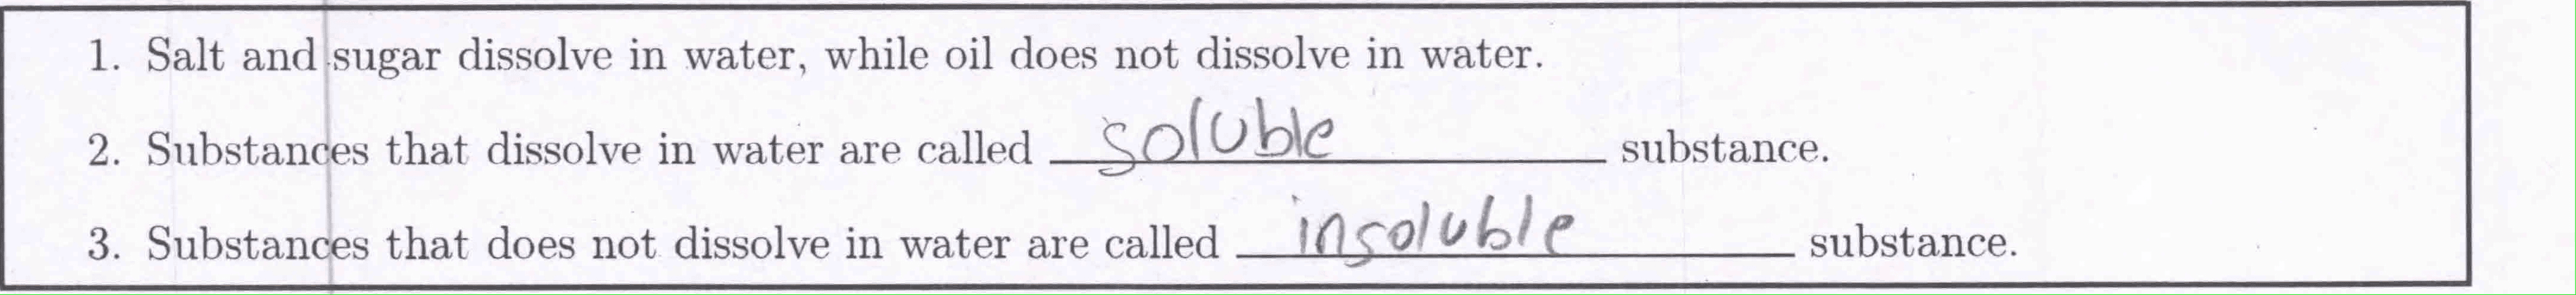 1. Salt and sugar dissolve in water, while oil does not dissolve in water.
2. Substances that dissolve in water are called soluble substance.
3. Substances that does not dissolve in water are called insoluble substance.